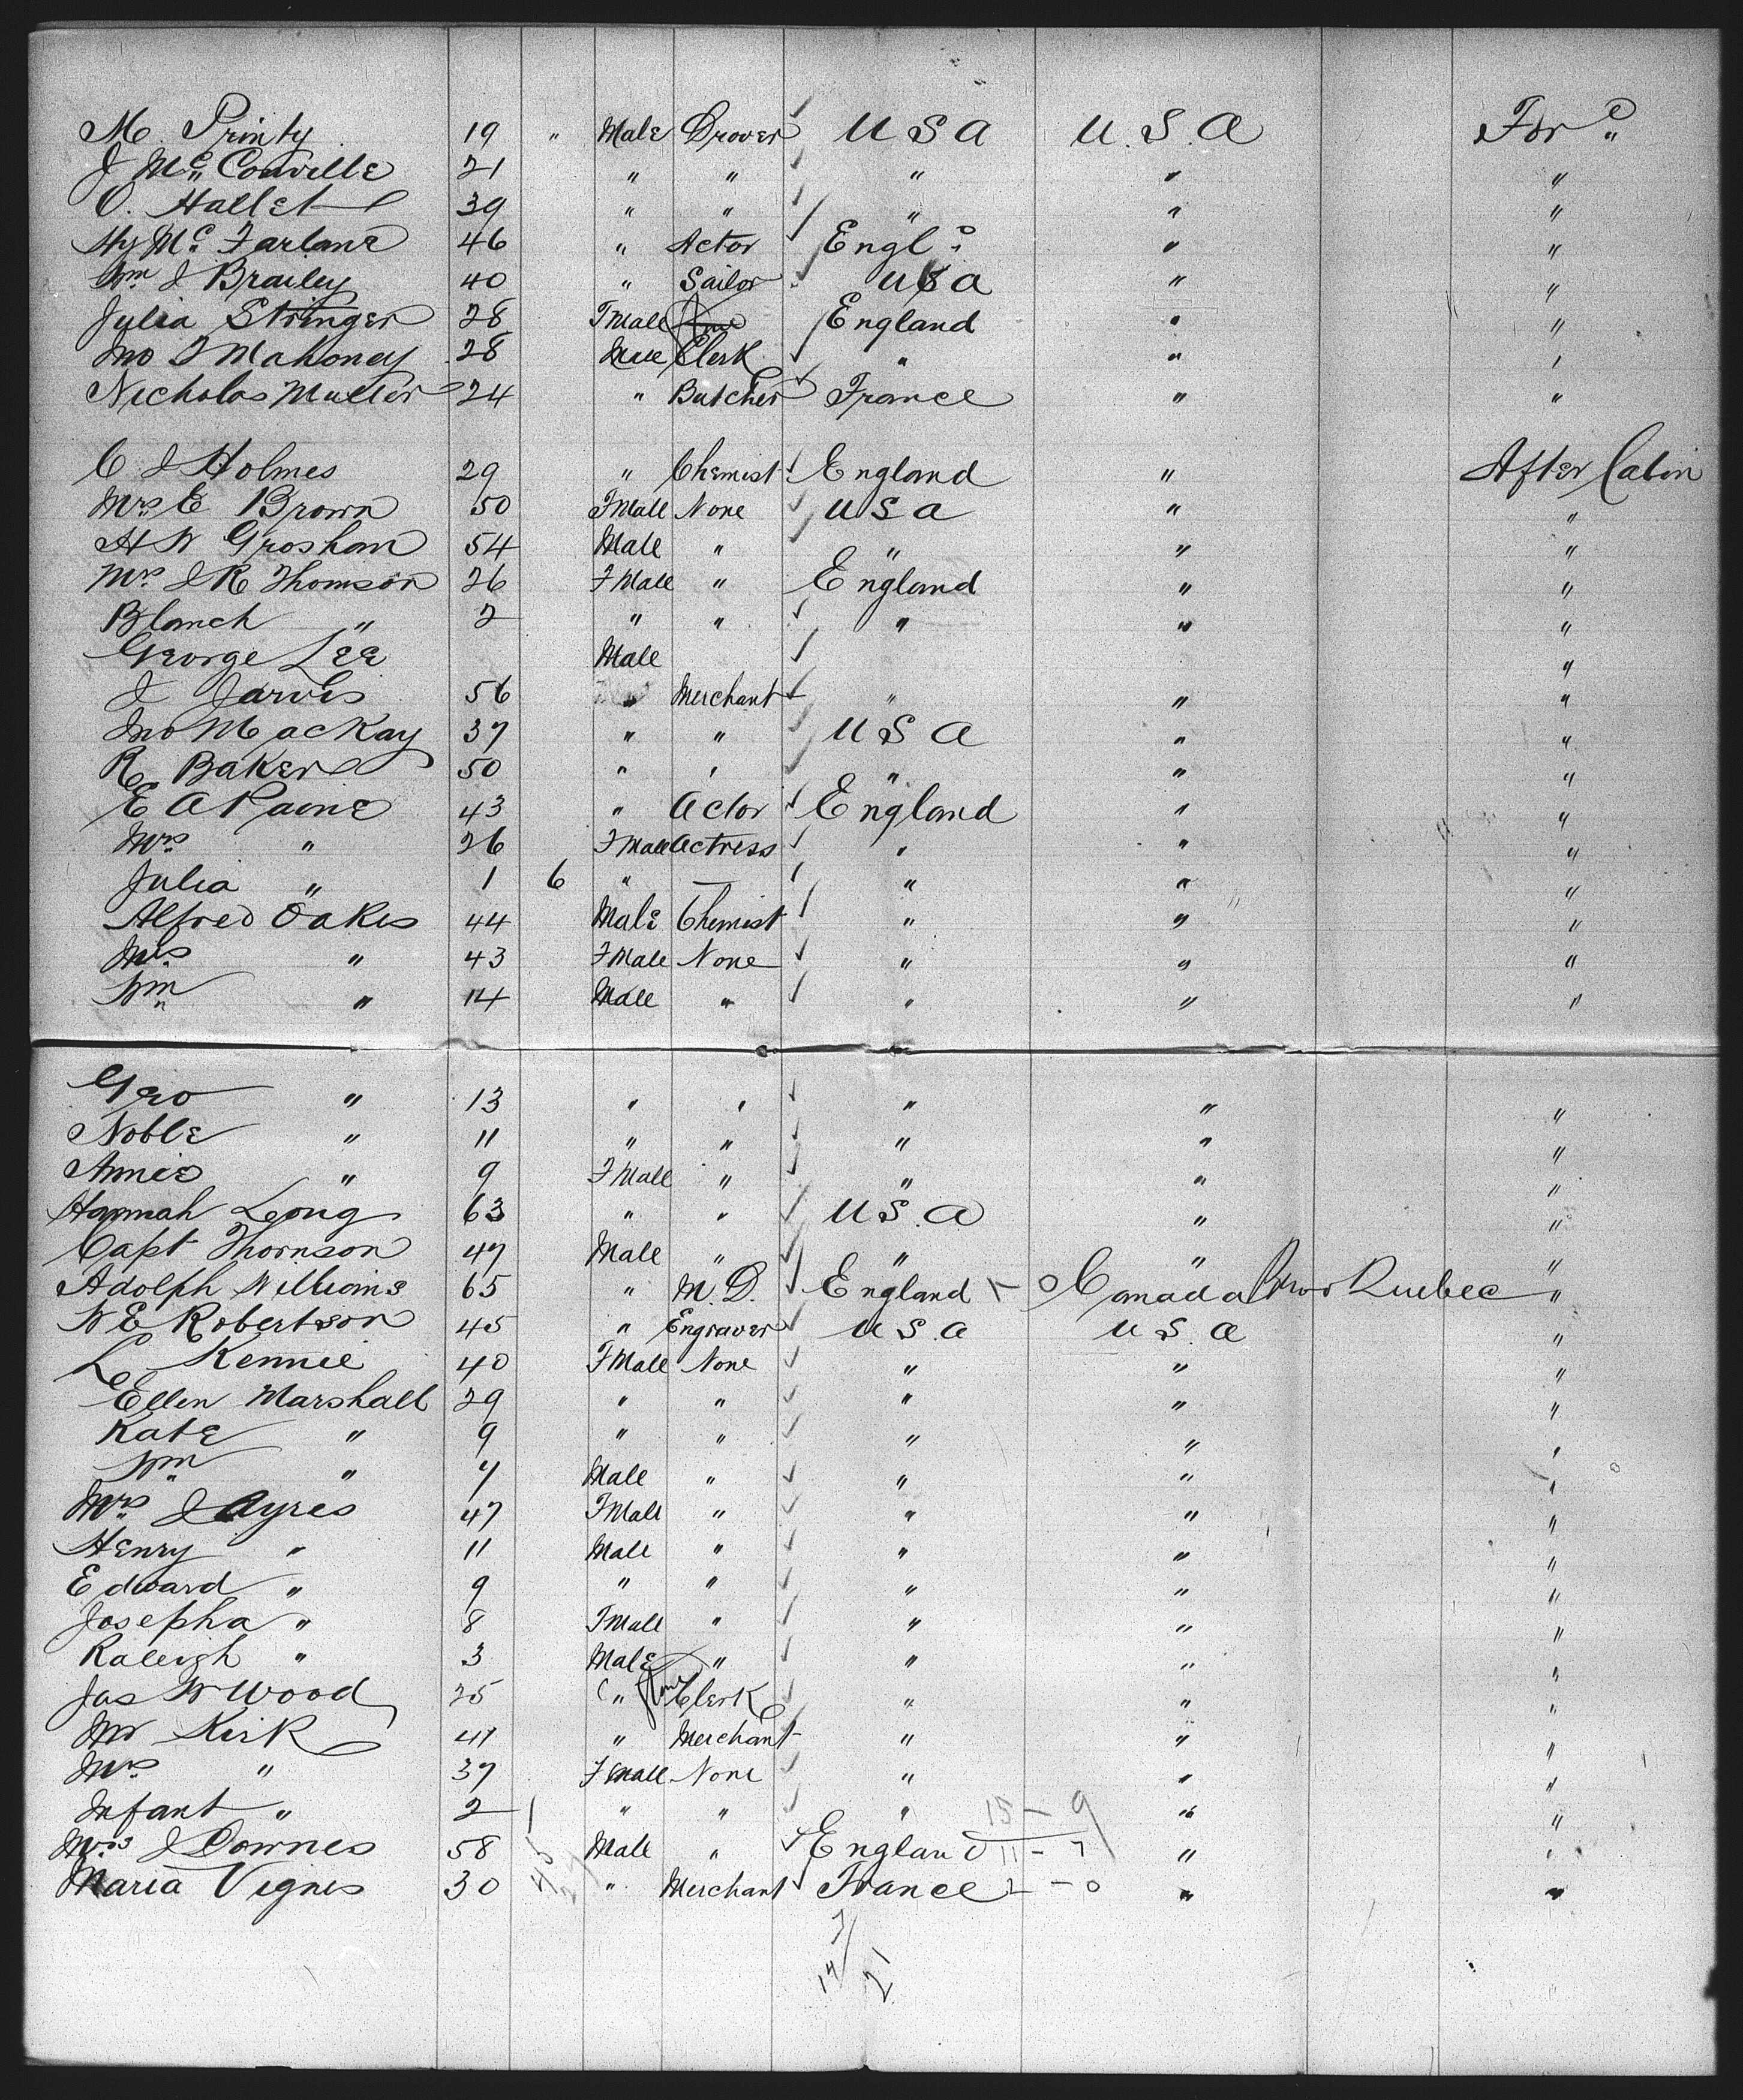 M. Printy 19 " Male Drover U S A U. S. A For d
J Mc Conville 21 " " " " "
O. Hallet 39 " " " " "
Hy Mc Farlane 46 " Actor Engld " "
Wm J Brailey 40 " Sailor U S A " "
Julia Stringer 28 FMale England " "
Jno F Mahoney 28 Male Clerk " " "
Nicholas Muller 24 " Butcher France " "
C J Holmes 29 " Chemist England " After Cabin
Mrs E Brown 50 FMale None U S A " "
H W Grosham 54 Male " " " "
Mrs J R Thomson 26 FMale " England " "
Blanch " 2 " " " " "
George Lee Male "
J Jarvis 56 " Merchant " " "
Jno Mackay 37 " " U S A " "
R Baker 50 " " " " "
E A Paine 43 " Actor England " "
Mrs " 26 FMale Actress " " "
Julia " 1 6 " — " " "
Alfred Oakes 44 Male Chemist " " "
Mrs " 43 FMale None " " "
Wm " 14 Male " " " "
Geo " 13 " " " " "
Noble " 11 " " " " "
Annie " 9 FMale " " " "
Hannah Leong 63 " " U S. A " "
Capt Thornson 47 Male " " " "
Adolph Williams 65 " M. D. England Canada Quebec "
W E Robertson 45 " Engraver U S. A U S. A "
L Kennie 40 FMale None " " "
Ellen Marshall 29 " " " " "
Kate " 9 " " " " "
Wm " 7 Male " " " "
Mrs J Ayres 47 FMale " " " "
Henry " 11 Male " " " "
Edward " 9 " " " " "
Josepha " 8 FMale " " " "
Raleigh " 3 Male " " " "
Jas W Wood 25 " Clerk " " "
Mr Kirk 41 " Merchant " " "
Mrs " 37 FMale None " " "
Infant " 2 " " " 15 - 9 " "
Mrs J Downes 58 Male " England 11 - 7 " "
Maria Vignes 30 " Merchant France 2 - 0 " "
7
14 21